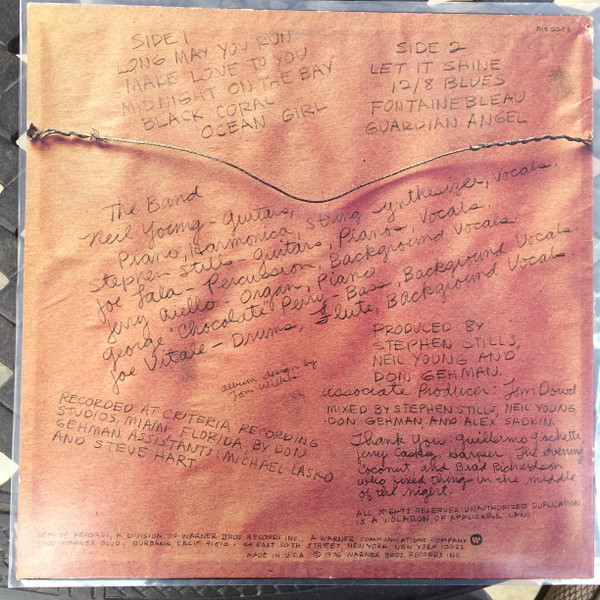 SIDE 1
LONG MAY YOU RUN
MAKE LOVE TO YOU
MIDNIGHT ON THE BAY
BLACK CORAL
OCEAN GIRL
SIDE 2
LET IT SHINE
12/8 BLUES
FONTAINEBLEAU
GUARDIAN ANGEL
The Band
Neil Young - Guitars,
Piano, Harmonica, String Synthesizer, Vocals.
Stephen Stills - Guitars, Pianos, Vocals.
Joe Lala - Percussion, Background Vocals.
Jerry Aiello - Organ, Piano
George "Chocolate" Perry - Bass, Background Vocals.
Joe Vitale - Drums, Flute, Background Vocals.
album design by
Tom Wilkes
RECORDED AT CRITERIA RECORDING
STUDIOS, MIAMI, FLORIDA, BY DON
GEHMAN. ASSISTANTS: MICHAEL LASKO
AND STEVE HART.
PRODUCED BY
STEPHEN STILLS,
NEIL YOUNG AND
DON GEHMAN.
Associate Producer: Tom Dowd
MIXED BY STEPHEN STILLS, NEIL YOUNG,
DON GEHMAN AND ALEX SADKIN.
Thank You: Guillermo Giachetti
Jerry Harper. The evening
Coconut, and Brad Richardson
who fixed things in the middle
of the night.
ALL RIGHTS RESERVED UNAUTHORIZED DUPLICATION
IS A VIOLATION OF APPLICABLE LAWS
REPRISE RECORDS, A DIVISION OF WARNER BROS. RECORDS INC., A WARNER COMMUNICATIONS COMPANY
3300 WARNER BLVD., BURBANK, CALIF. 91510 • 44 EAST 50TH STREET, NEW YORK, NEW YORK 10022
MADE IN U.S.A. © 1976 WARNER BROS. RECORDS INC.